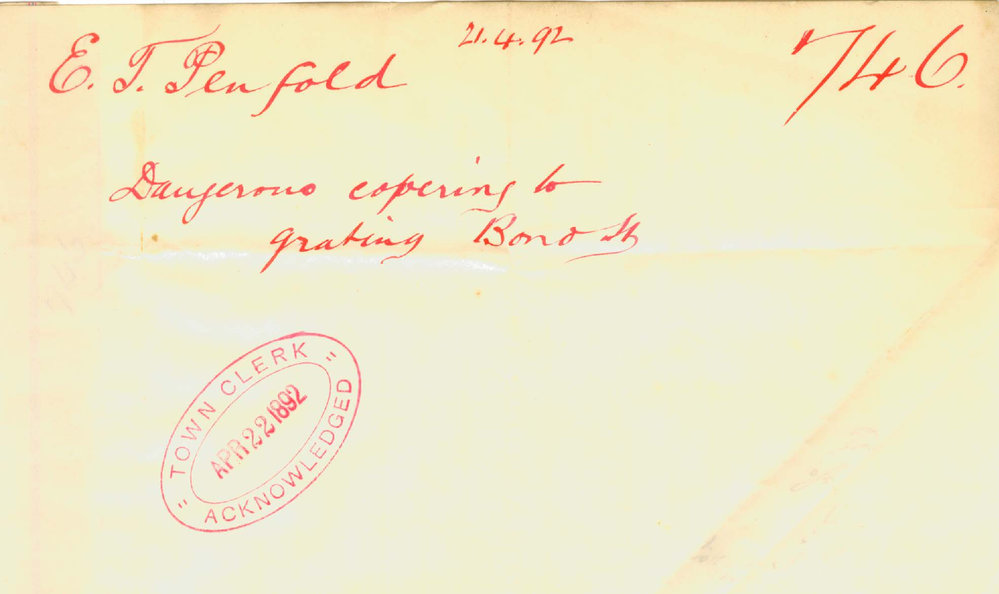 21.4.92
E. T. Penfold
746.
Dangerous covering to
grating Bond St
TOWN CLERK
APR 22 1892
ACKNOWLEDGED